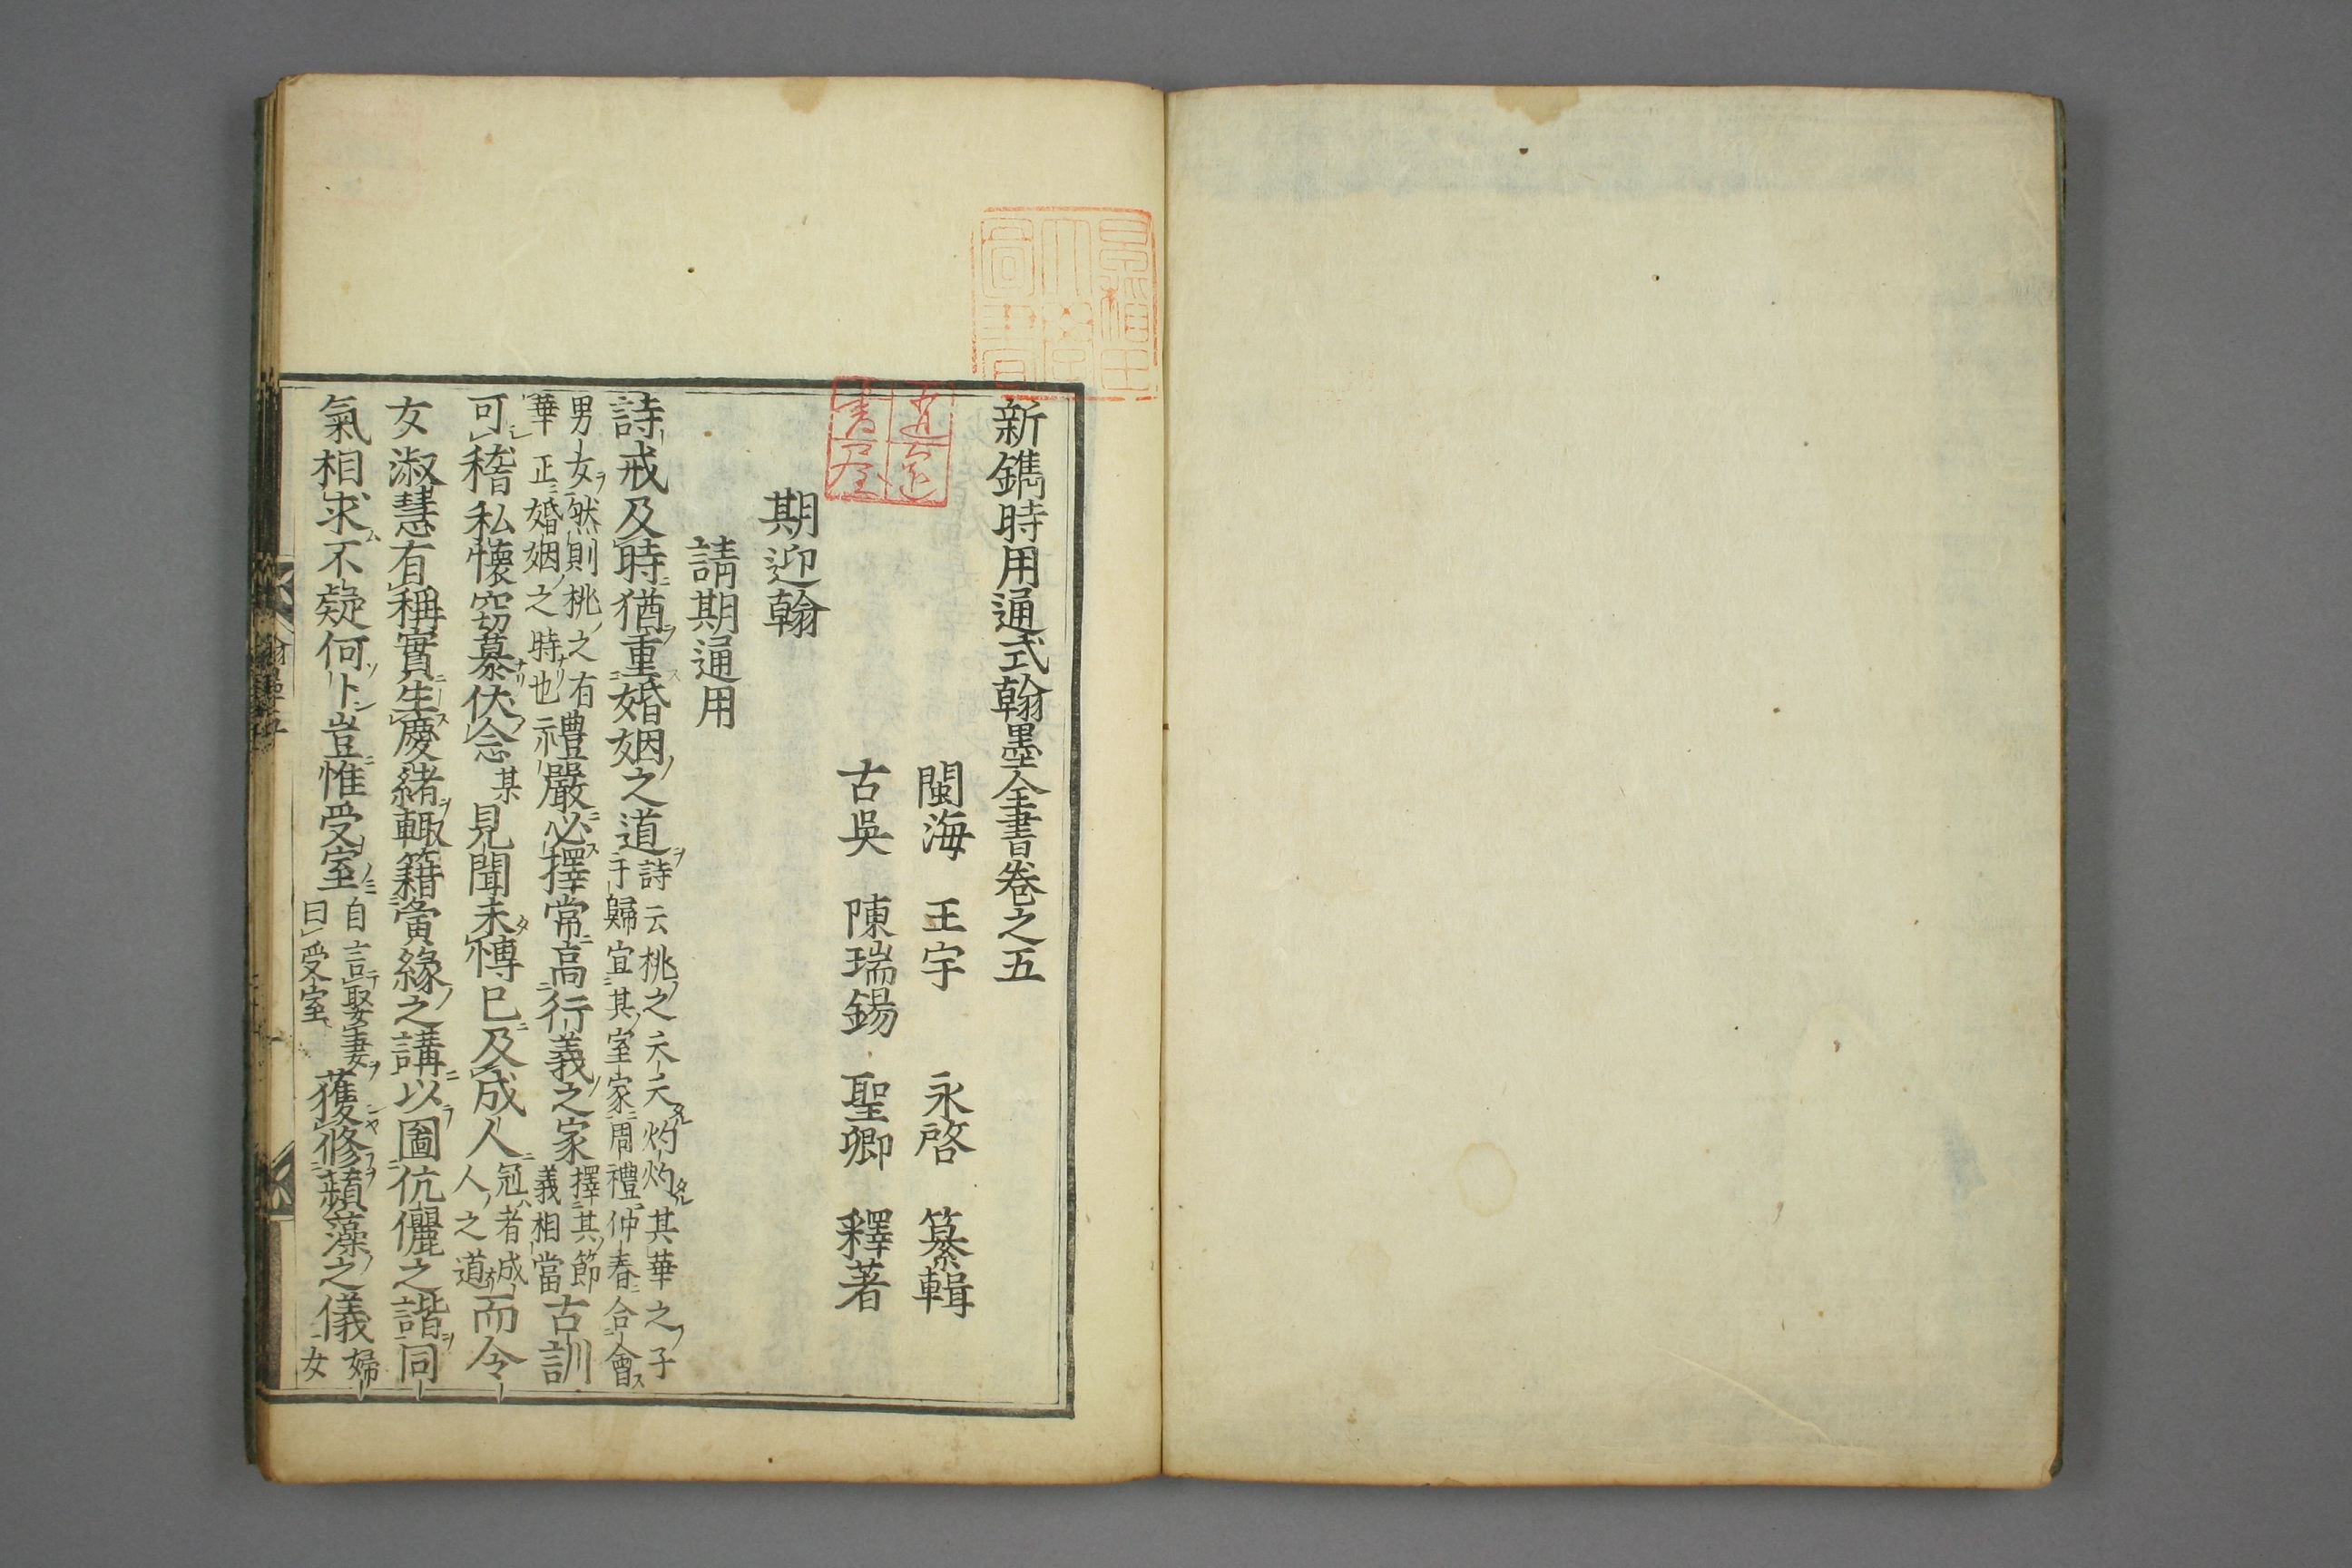 新鐫時用通式翰墨全書卷之五
閩海　王宇　永啓　纂輯
古吳　陳瑞錫　聖卿　釋著
期迎翰
請期通用
詩戒及時猶重婚姻之道詩云桃之夭夭灼灼其華之子
于歸宜其室家周禮仲春合會
男女然則桃之有
華正婚姻之時也禮嚴必擇常高行義之家擇其節
義相當古訓
可稽私懷窃慕伏念某見聞未愽已及成人冠者成
人之道而令
女淑慧有稱實生慶緒輙籍夤緣之講以圖伉儷之諧同
氣相求不疑何卜豈惟受室自言娶妻
曰受室獲修蘋藻之儀婦
女
早稲田大學圖書